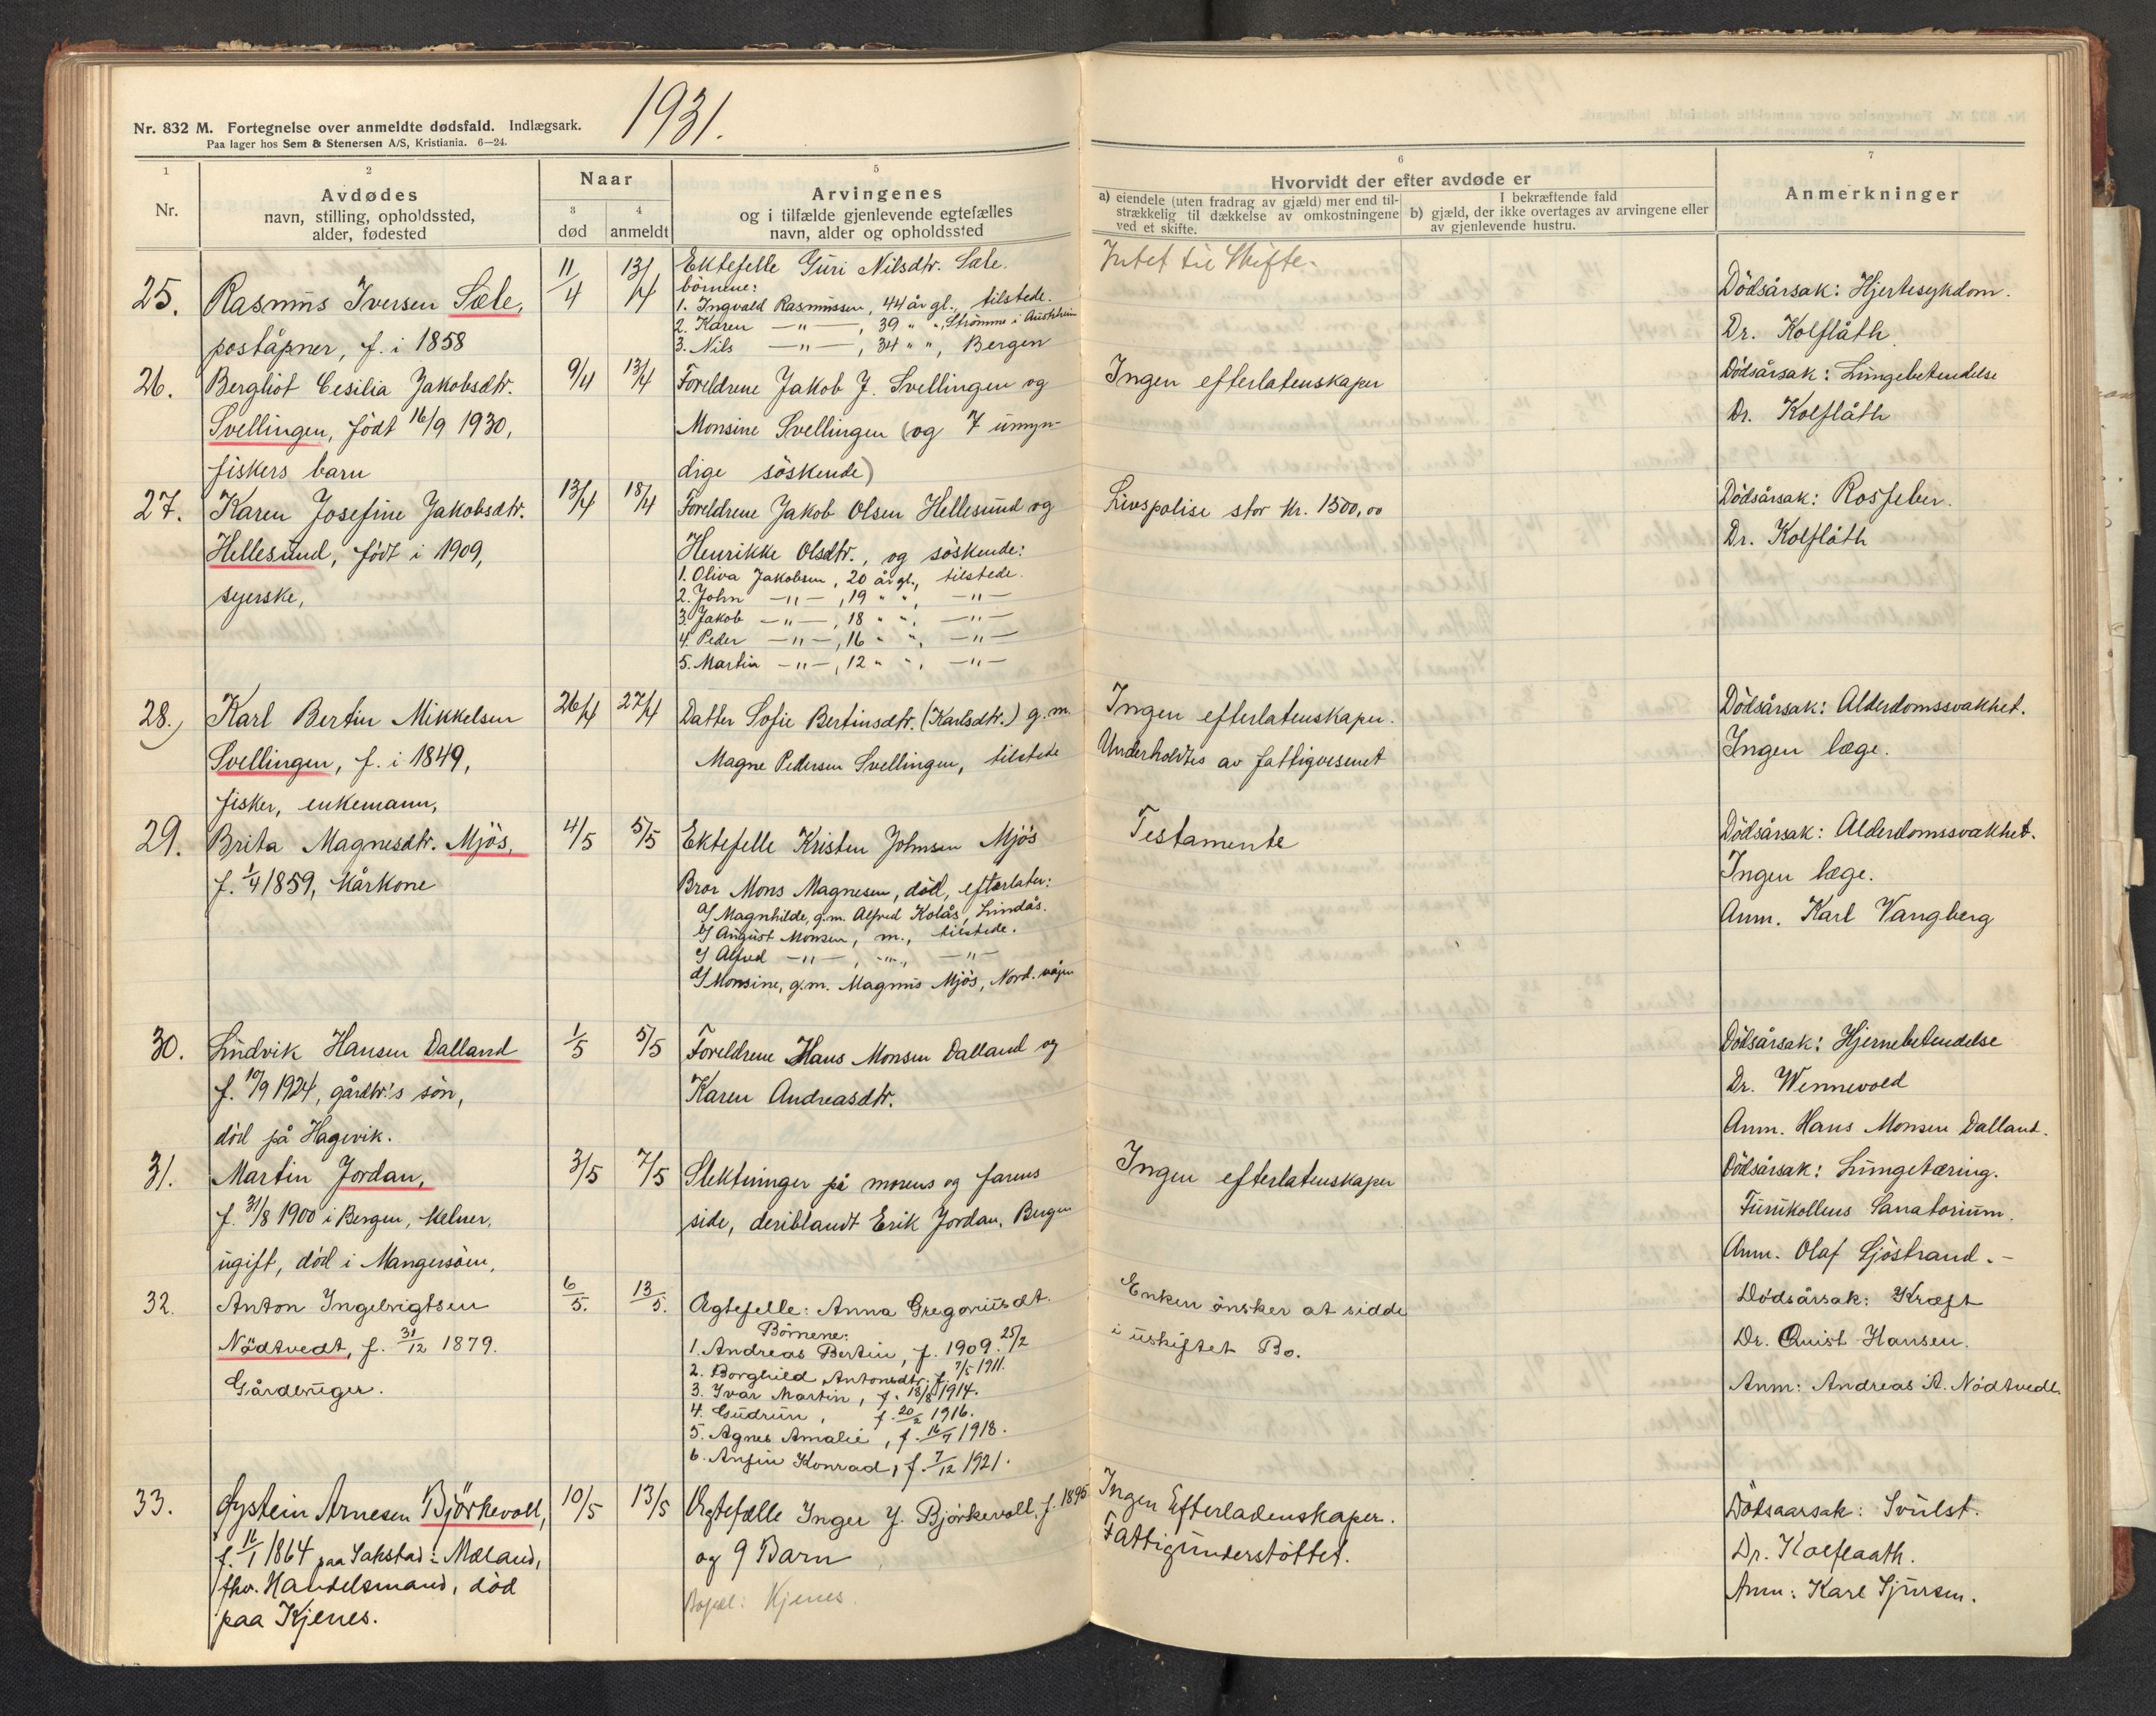 1931.
Nr. 832 M. Fortegnelse over anmeldte dødsfald. Indlægsark.
Paa lager hos Sem & Stenersen A/S, Kristiania. 6—24.
1
Nr.
2
Avdødes
navn, stilling, opholdssted,
alder, fødested
Naar
3
død
4
anmeldt
5
Arvingenes
og i tilfælde gjenlevende egtefælles
navn, alder og opholdssted
6
Hvorvidt der efter avdøde er
a) eiendele (uten fradrag av gjæld) mer end til-
strækkelig til dækkelse av omkostningene
ved et skifte.
I bekræftende fald
b) gjæld, der ikke overtages av arvingene eller
av gjenlevende hustru.
7
Anmerkninger
25.
Rasmus Iversen Sæle,
poståpner, f. i 1858
11/4
13/4
Ektefelle Guri Nilsdtr. Sæle.
börnene:
1. Ingvald Rasmussen, 44 år gl., tilstede.
2. Karen —"—, 39 " ", Strömme i Austrheim
3. Nils —"—, 34 " ", Bergen
Intet til Skifte.
Dödsårsak: Hjertesykdom.
Dr. Kolflåth.
26.
Bergliot Cesilia Jakobsdtr.
Svellingen, födt 16/9 1930,
fiskers barn
9/4
13/4
Foreldrene Jakob J. Svellingen og
Monsine Svellingen (og 7 umyn-
dige söskende)
Ingen efterlatenskaper
Dödsårsak: Lungebetendelse
Dr. Kolflåth
27.
Karen Josefine Jakobsdtr.
Hellesund, födt i 1909,
syerske,
13/4
18/4
Foreldrene Jakob Olsen Hellesund og
Henrikke Olsdtr., og söskende:
1. Oliva Jakobsen, 20 år gl., tilstede.
2. John —"—, 19 " ", —"—
3. Jakob —"—, 18 " ", —"—
4. Peder —"—, 16 " ", —"—
5. Martin —"—, 12 " ", —"—
Livspolise stor kr. 1500,00
Dödsårsak: Rosfeber.
Dr. Kolflåth
28.
Karl Bertin Mikkelsen
Svellingen, f. i 1849,
fisker, enkemann,
26/4
27/4
Datter Sofie Bertinsdtr. (Karlsdtr.) g.m.
Magne Pedersen Svellingen, tilstede
Ingen efterlatenskaper.
Underholdtes av fattigvesenet
Dödsårsak: Alderdomssvakhet.
Ingen læge.
29.
Brita Magnesdtr. Mjös,
f. 1/4 1859, kårkone
4/5
5/5
Ektefelle Kristen Johnsen Mjös
Bror Mons Magnesen, död, efterlater:
a/ Magnhilde, g.m. Alfred Kolås, Lindås.
b/ August Monsen, m., tilstede.
c/ Alfred —"—, —"—, —"—
d/ Monsine, g.m. Magnus Mjös, Nord.vågen
Testamente
Dödsårsak: Alderdomssvakhet.
Ingen læge.
Anm. Karl Vangberg
30.
Ludvik Hansen Dalland
f. 10/9 1924, gårdbr.'s sön,
död på Hagevik.
1/5
5/5
Foreldrene Hans Monsen Dalland og
Karen Andreasdtr.
Dödsårsak: Hjernebetendelse
Dr. Wennevold
Anm. Hans Monsen Dalland.
31.
Martin Jordan,
f. 31/8 1900 i Bergen, kelner,
ugift, död i Mangersöen,
3/5
7/5
Slektninger på morens og farens
side, deriblandt Erik Jordan, Bergen
Ingen efterlatenskaper
Dödsårsak: Lungetæring.
Furukollens Sanatorium.
Anm. Olaf Sjöstrand.-
32.
Anton Ingebrigtsen
Nödtvedt, f. 31/12 1879.
Gårdbruger.
6/5.
13/5.
Ægtefelle: Anna Gregoriusdt.
Börnene:
1. Andreas Bertin, f. 1909. 25/2
2. Borghild Antonsdtr. f. 7/5 1911.
3. Ivar Martin, f. 18/8 1914.
4. Gudrun, f. 20/2 1916.
5. Agnes Amalie, f. 16/7 1918.
6. Anfin Konrad, f. 7/12 1921.
Enken önsker at sidde
i uskiftet Bo.
Dödsårsak: Kræft
Dr. Quist Hansen.
Anm: Andreas A. Nödtvedt.
33.
Øystein Arnesen Björkevoll,
f. 16/1 1864 paa Sakstad i Mæland,
fhv. Handelsmand, död
paa Kjenes.
10/5
13/5
Ægtefælle Inger J. Björkevoll. f. 1895
og 9 Barn
Bopæl: Kjenes.
Ingen Efterladenskaper.
Fattigunderstöttet.
Dödsaarsak: Svulst.
Dr. Kolflaath.
Anm: Karl Sjursen.